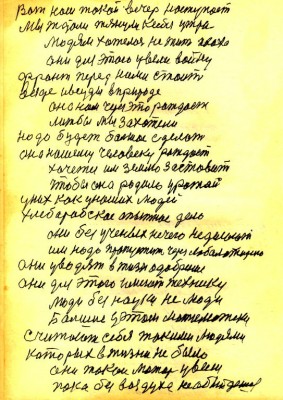 Вот нам такой вечер наступает
Мы ждали тянули себя утра
Людям хотелось не жить плохо
они для этого увели войну
фронт перед нами стоит
везде и всюду в природе
она нам чуть это рождает
лишь бы мы захотели
надо будет большое сделать
она нашему человеку рождает
хочет им землю заставит
чтобы она родала урожай
у них как у наших людей
хлебарабское опытное дело
они без ученых нечего не делают
им надо пропустить через
они уводят в жизнь одобрение
они для этого имеют технику
люди без науки не люди
Большие у этом математики
Считают себя такими людями
которых в жизни не было
они такой мотор увели
пока без воздуха не обойдешся